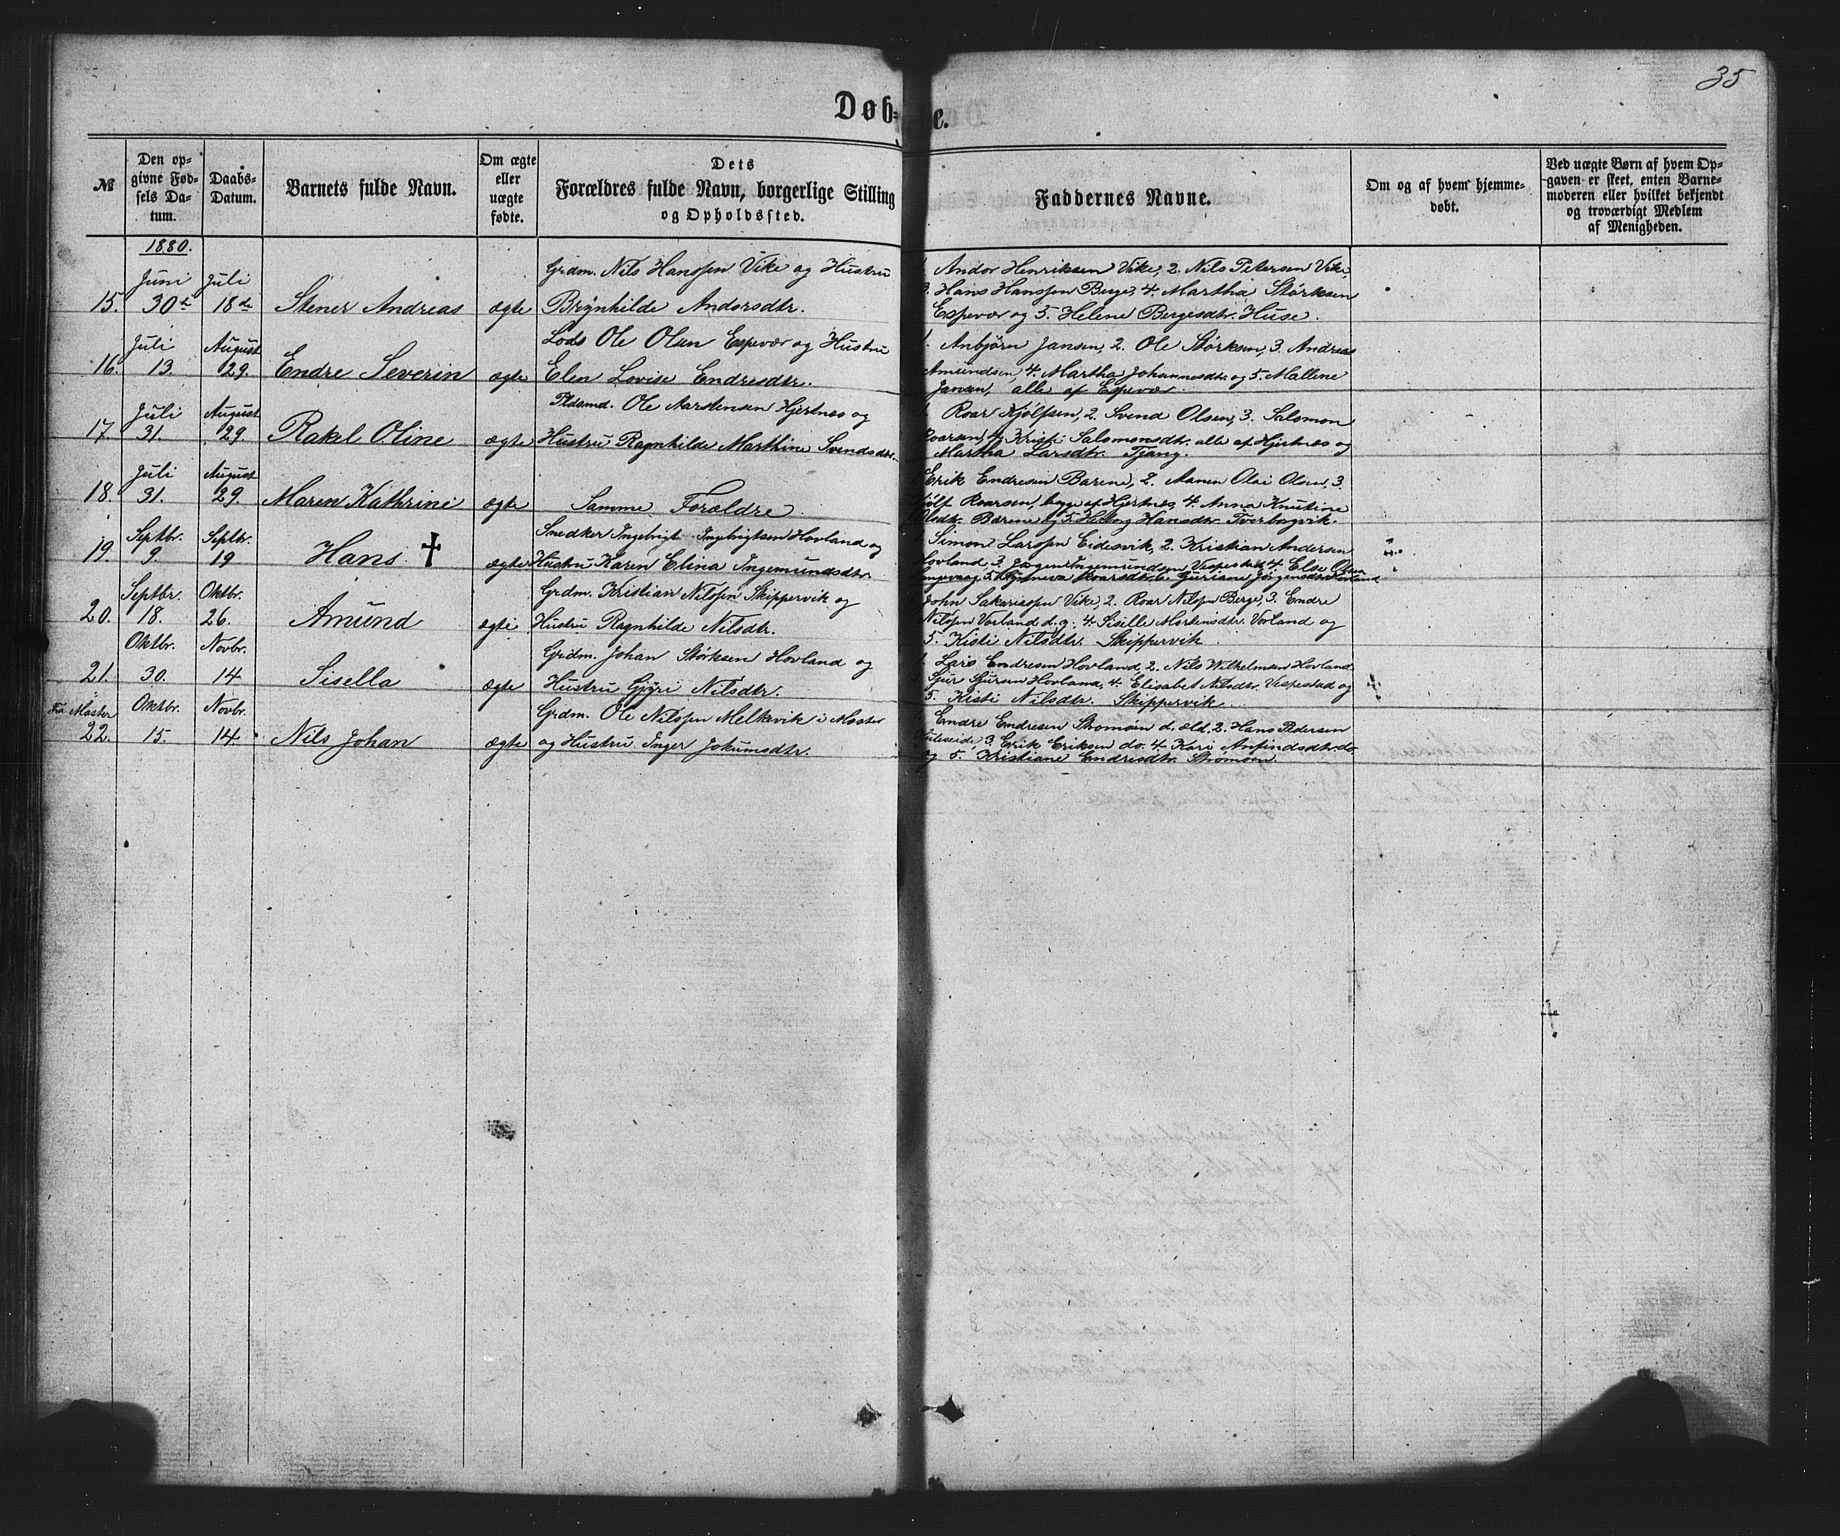 35
Døb-
e.
№
Den op-
givne Fød-
sels Da-
tum.
Daabs-
Datum.
Barnets fulde Navn.
Om ægte
eller
uægte
fødte.
Dets
Forældres fulde Navn, borgerlige Stilling
og Opholdssted.
Faddernes Navne.
Om og af hvem hjemme-
døbt.
Ved uægte Børn af hvem Op-
gaven er skeet, enten Barne-
moderen eller hvilket bekjendt
og troværdigt Medlem
af Menigheden.
1880.
Juni Juli Grdm. Nils Hanssen Vike og Hustru
15. 30te 18de Stener Andreas ægte Brynhilde Andorsdtr.
Andor Henriksen Vike, 2. Nils Petersen Vike,
3. Hans Hanssen Berge, 4. Martha Størksen
Espevær og 5. Helene Bergesdtr. Huse.
Juli August Lods Ole Olsen Espevær og Hustru
16. 13. 29. Endre Severin ægte Elen Lovise Endresdtr.
1. Anbjørn Jansen, 2. Ole Størksen, 3. Andreas
Amundsen, 4. Martha Johannesdtr. og 5. Mallene
Jansen, alle af Espevær.
Juli August Pldsmd. Ole Aarstensen Hjertnæs og
17. 31. 29. Rakel Oline ægte Hustru Ragnhilde Marthine Svendsdtr.
1. Roar Kjølfsen, 2. Svend Olsen, 3. Salomon
Roarsen, 4. Kristi Salomonsdtr. alle af Hjertnæs og
Martha Larsdtr. Tjong.
Juli August
18. 31. 29. Maren Kathrine ægte Samme Forældre.
Erik Endresen Barene, 2. Aanen Olai Olsen, 3.
Roarsen, begge af Hjertnæs, 4. Anna Knutine
Olsdtr. Barene og 5. Hansdtr. Tverborgvik.
Septbr. Septbr. Snedker Ingebrigt Ingebrigtsen Hovland og
19. 9. 19 Hans † ægte Hustru Karen Elina Ingemundsdtr.
1. Simon Larssen Eidesvik, 2. Kristian Andersen
Hovland 3. Jørgen Ingemundsen Vespestad, 4. Else Olsen
5. Roarsdtr. 6. Guriane Jørgensdtr. Hovland
Septbr. Oktbr. Grdm. Kristian Nilssen Skippervik og
20. 18. 26. Amund ægte Hustru Ragnhilde Nilsdtr.
John Sakariassen Vike, 2. Roar Nilssen Berge, 3. Endre
Nilssen Vorland d.y. 4. Siselle Mortensdtr. Vorland og
5. Kisti Nilsdtr. Skippervik.
Oktbr. Novbr. Grdm. Johan Størksen Hovland og
21. 30. 14 Sisella ægte Hustru Gjøri Nilsdtr.
1. Lars Endresen Hovland, 2. Nils Wilhelmsen Hovland
Sjur Sjursen Hovland, 4. Elisabet Nilsdtr. Vespestad og
5. Kisti Nilsdtr. Skippervik.
Fra Moster Oktbr. Novbr. Grdm. Ole Nilssen Melkevik i Moster
22. 15. 14. Nils Johan ægte og Hustru Inger Jokumsdtr.
Endre Endresen Strømøen d. æld. 2. Hans Pedersen
3. Erik Eriksen do. 4. Kari Anfindsdtr. do.
og 5. Kristiane Endresdtr. Strømøen.